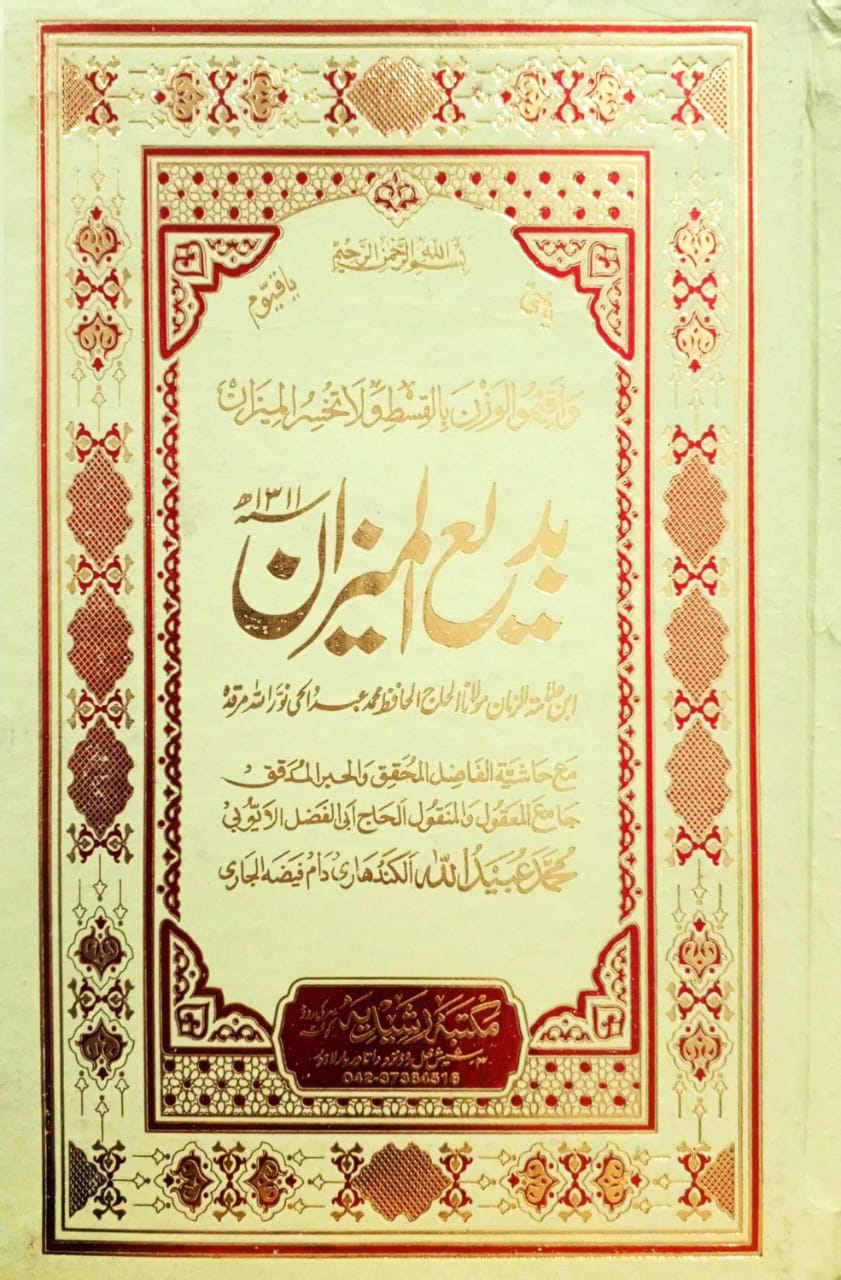 بسم الله الرحمن الرحیم
یا حی
یا قیوم
وَاَقِیْمُوا الْوَزْنَ بِالْقِسْطِ وَلَا تُخْسِرُ الْمِیْزَانَ
بدیع المیزان
سنه ۱۳۱۱ھ
ابن علامة الزمان مولانا الحاج الحافظ محمد عبد الحی نوّر الله مرقده
مع حاشیة الفاضل المحقق والحبر المدقق
جامع المعقول والمنقول الحاج ابی الفضل الایوبی
محمّد عبید الله الکندهاری دام فیضه الجاری
مکتبه رشیدیه
روڈ
شیش محل روڈ نزد داتا دربار لاہور
042-37384516